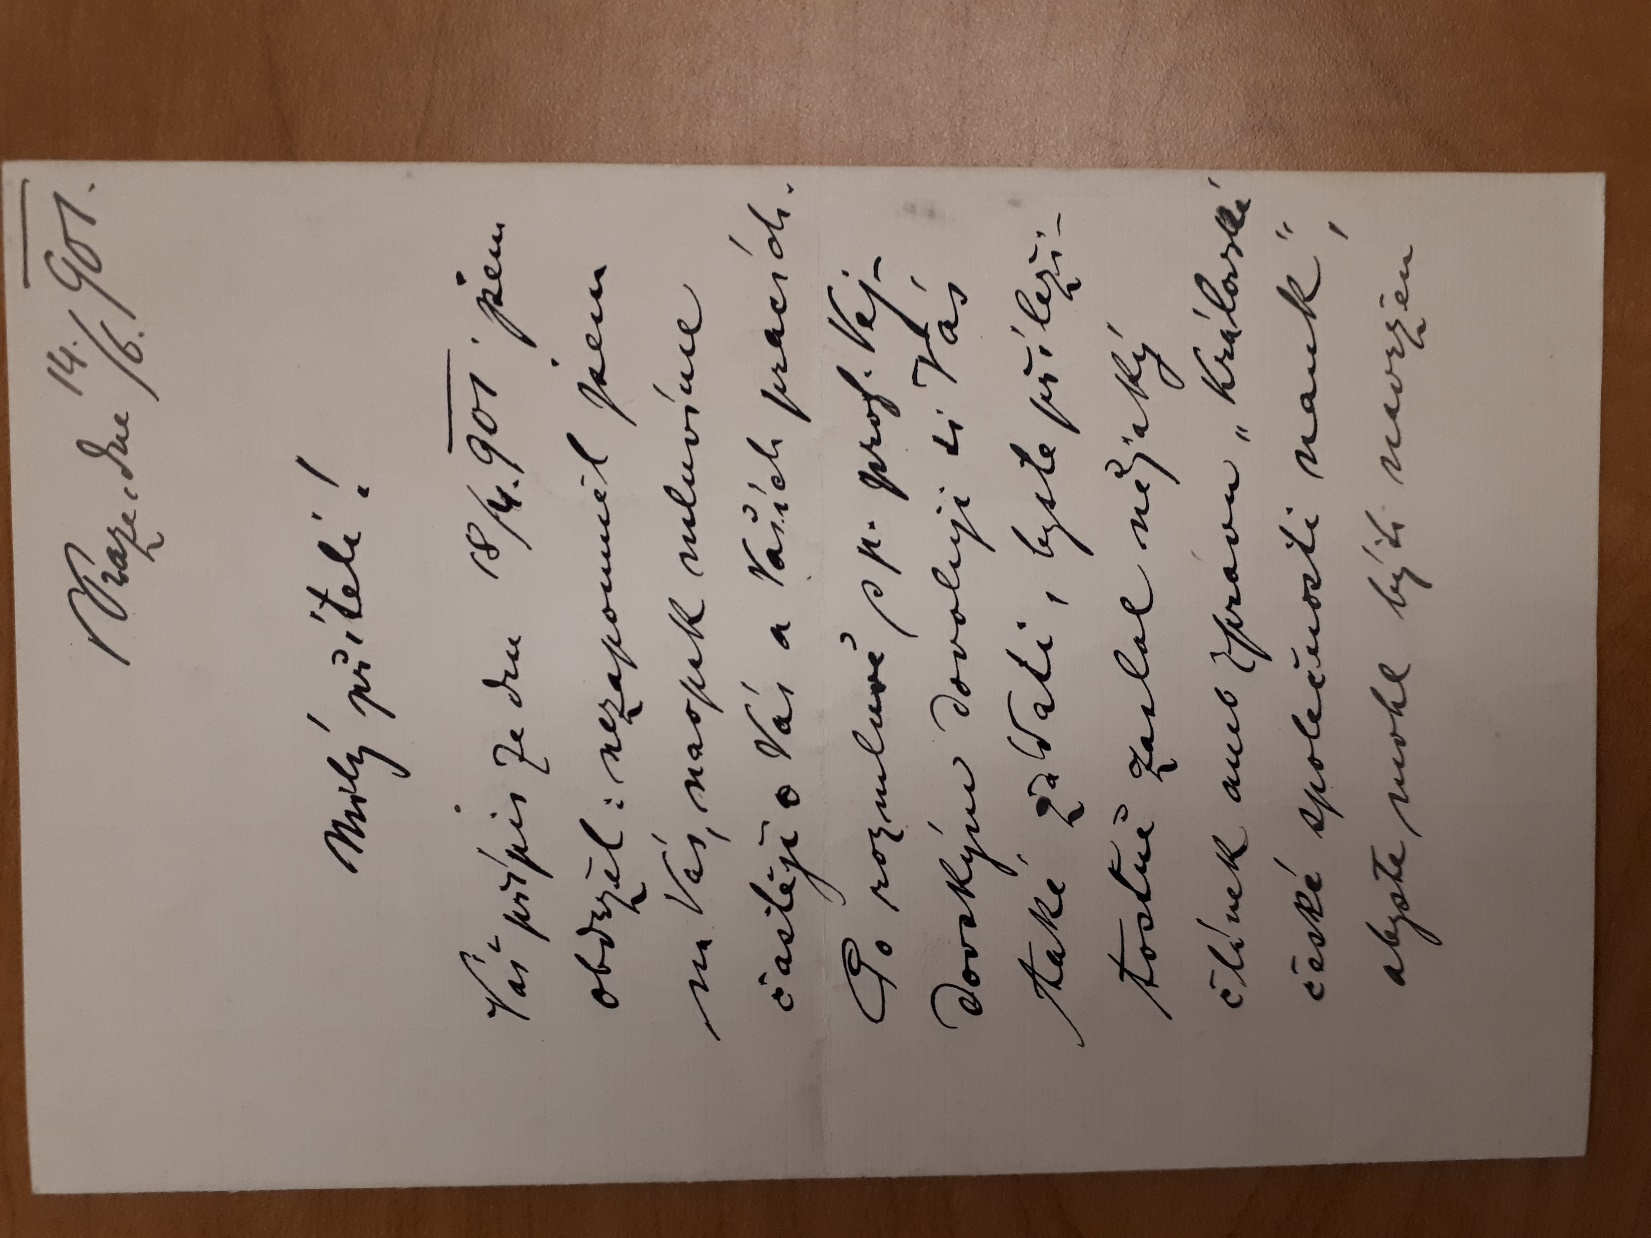 V Praze, dne 14./6. 901.
Milý příteli!
Váš přípis ze dne 18/4. 901. jsem
obdržel: nezapomněl jsem
na Vás, naopak mluvíme
častěji o Vás a Vašich pracích.
Po rozmluvě s p. prof. Vej-
dovským dovoluji si Vás
také žádati, byste příleži-
tostně zaslal nějaký
článek aneb zprávu „Královské
české společnosti nauk",
abyste mohl býti navržen